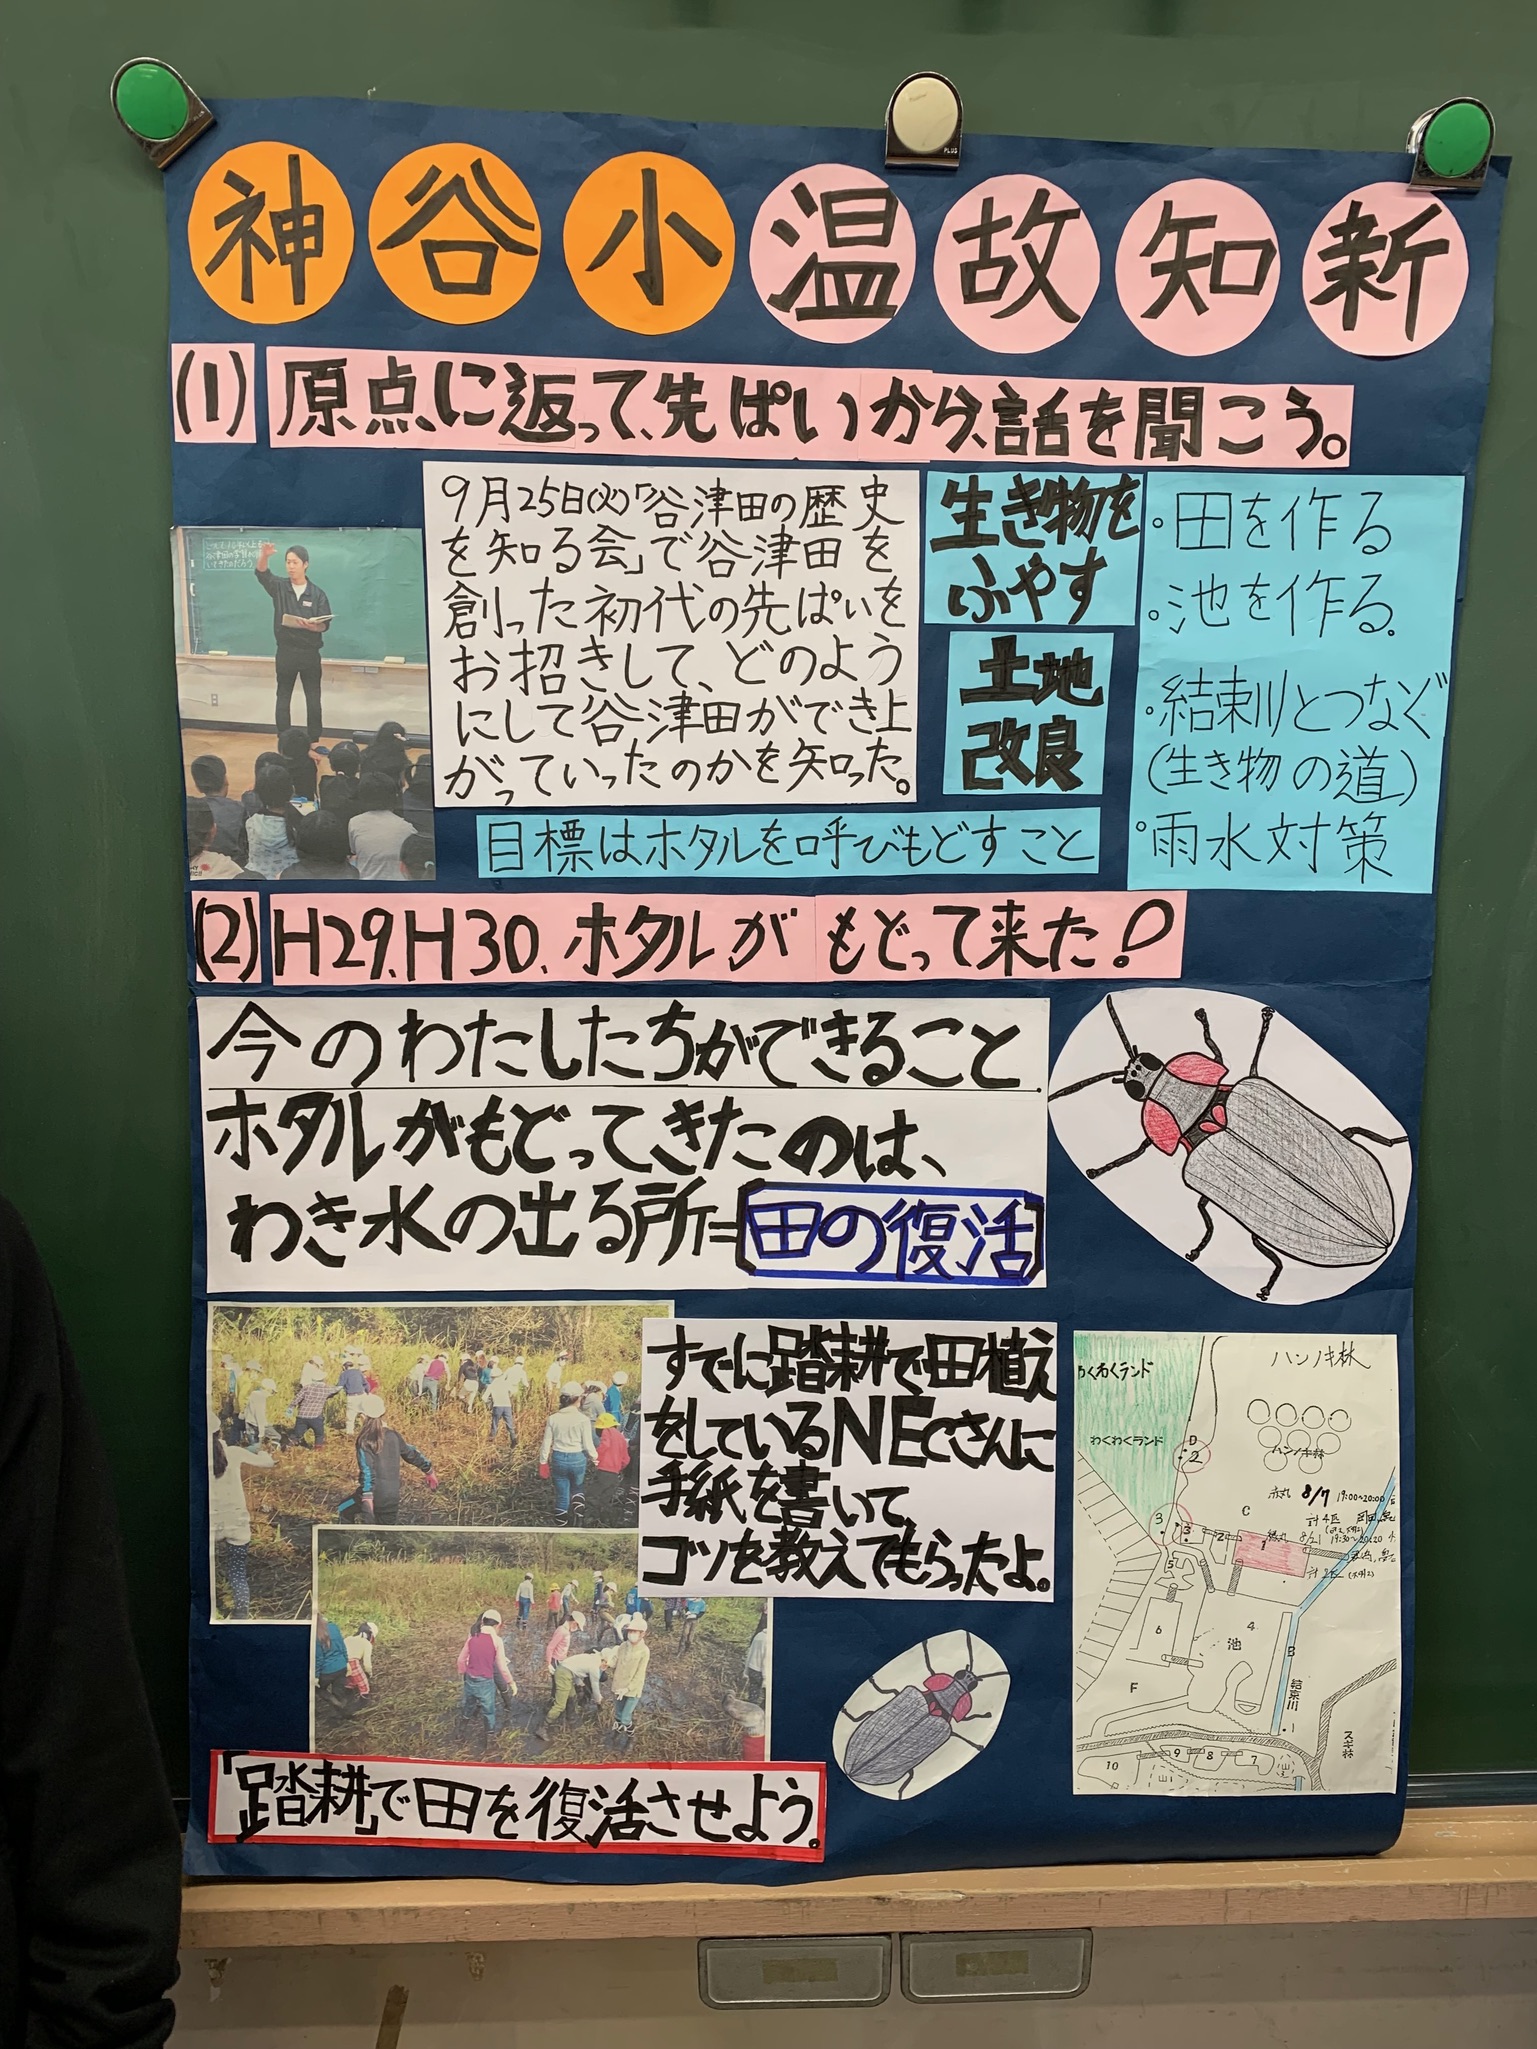 神谷小温故知新
(1)原点に返って、先ぱいから、話を聞こう。
9月25日(火)「谷津田の歴史
を知る会」で谷津田を
創った初代の先ぱいを
お招きして、どのよう
にして谷津田ができ上
がっていったのかを知った。
生き物を
ふやす
土地
改良
。田を作る
。池を作る。
・結束川とつなぐ
(生き物の道)
。雨水対策
目標はホタルを呼びもどすこと
(2)H29、H30、ホタルがもどって来た!
今のわたしたちができること
ホタルがもどってきたのは、
わき水の出る所=田の復活
すでに踏耕で田植え
をしているNECさんに
手紙を書いて、
コツを教えてもらったよ。
「踏耕」で田を復活させよう。
わくわくランド
ハンノキ林
わくわくランド
D
2
ハンノキ林
8/7 19:00~20:00
C
3
3
2
1
8/21 19:30~20:20
5
6
4
池
B
F
結束川
スギ林
10
9
8
7